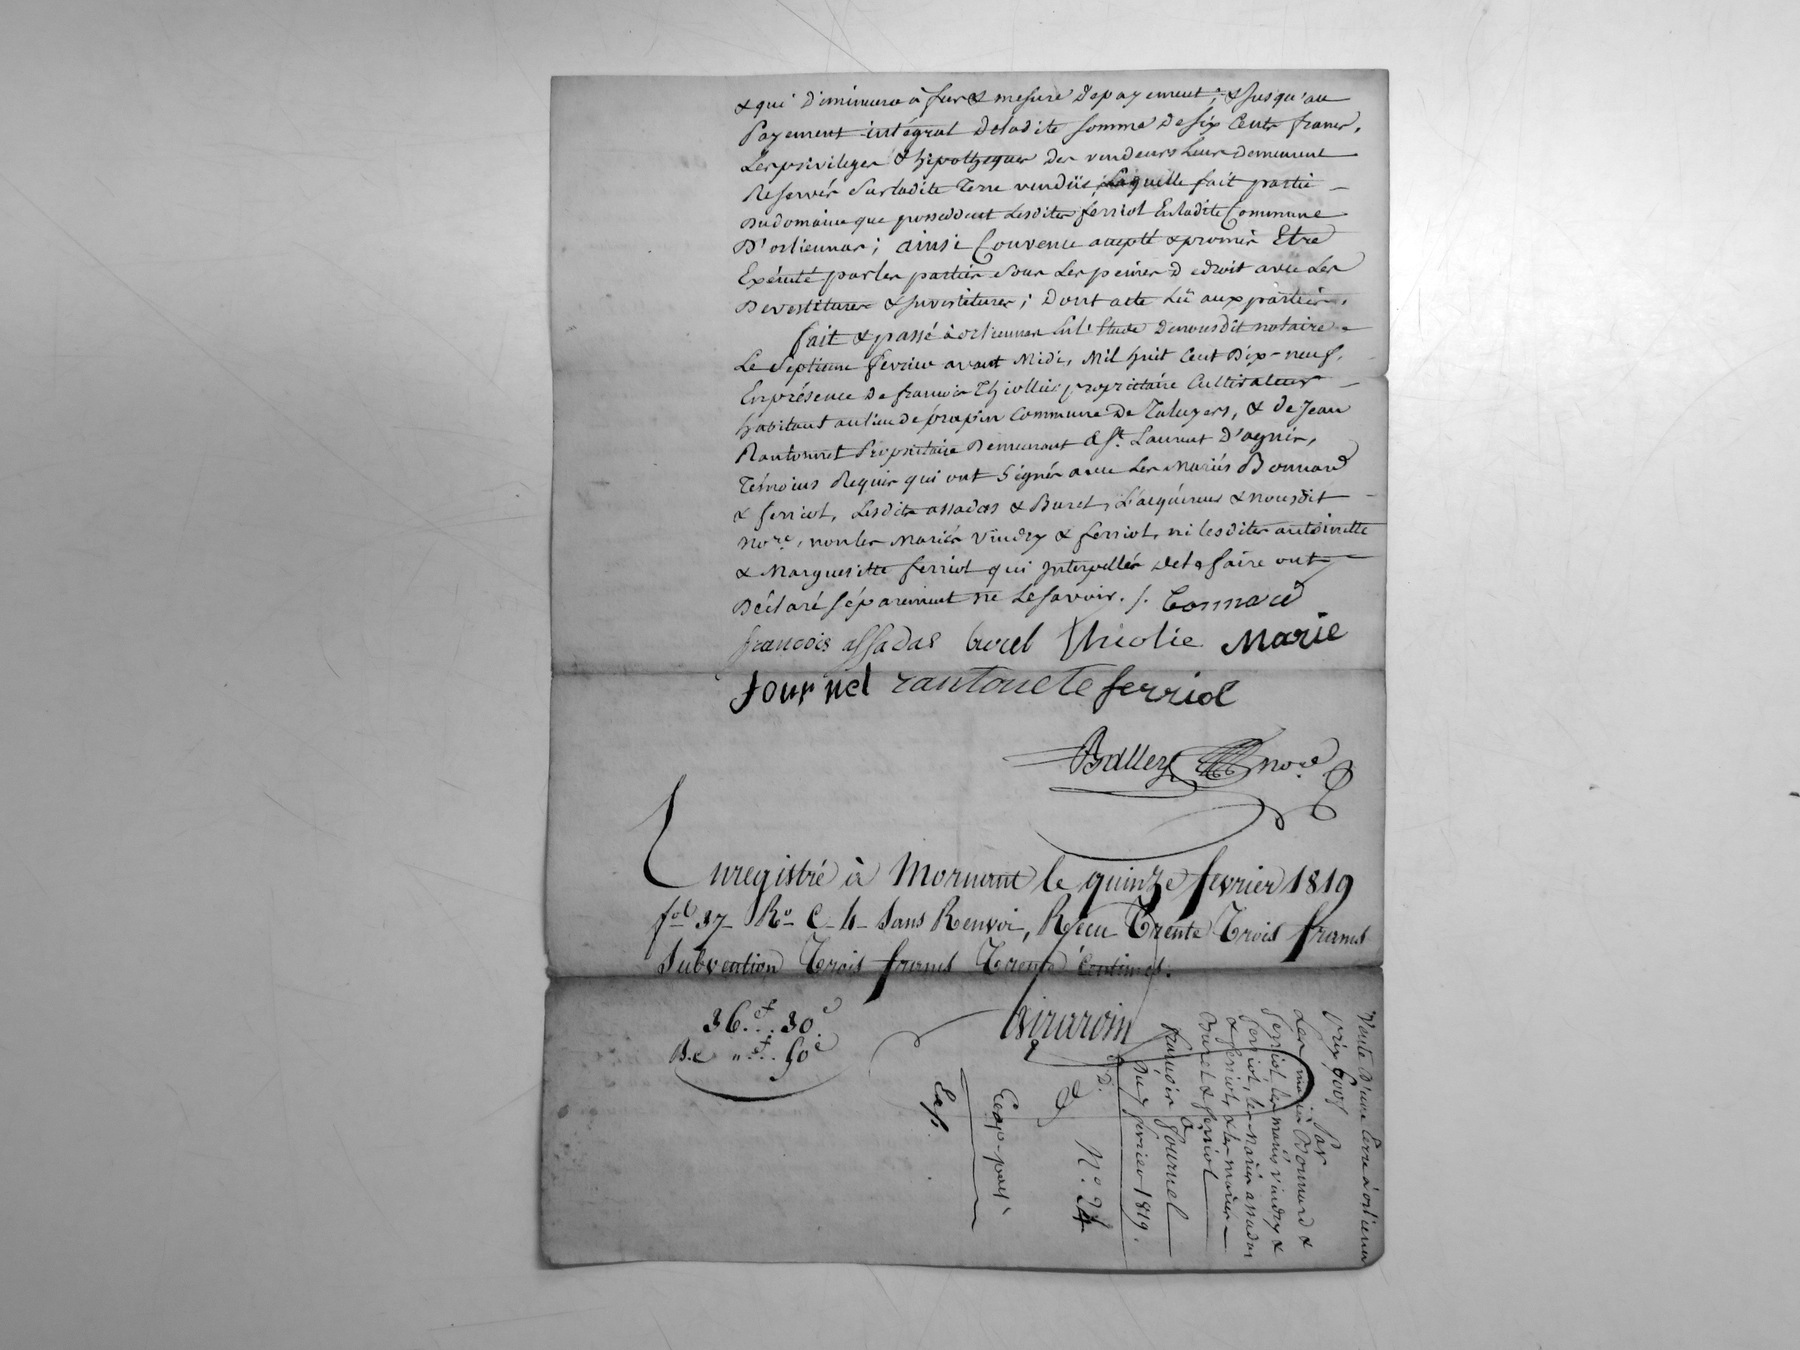 & qui diminuera à fur & mesure depayement; & Jusqu'au
Payement intégral deladite somme de six Cents francs,
Les privileges & hipotheques des vendeurs leur demeurent
Reservés sur ladite Terre vendüe, Laquelle fait partie
Du domaine que possedent Lesdites ferriol En ladite Commune
D'orliennas; ainsi Convenu accepté & promis Etre
Exécuté par les parties sous les peines de droit avec Les
Devestitures & Investitures; dont acte Lü aux parties.
fait & passé à orlienas En l'Etude denousdit notaire
Le Septieme fevrier avant Midi, Mil huit Cent Dix-neuf,
En présence de francois Thiollier proprietaire Cultivateur
habitant au lieu de prapin Commune De Taluyers, & de Jean
Rantonnet Propriétaire Demeurant à St. Laurent D'agnis,
Témoins Requis qui ont Signés avec Les Mariés Bonnard
& ferriol, Lesdits assadas & Buret, L'acquéreur & nousdit
no.re, non les Mariés Vindry & ferriol, ni lesdites antoinette
& Marguerite ferriol qui Interpellés de le faire ont
Déclaré séparément ne Le savoir. /. bonnard
francois assadas burel thiolie Marie
fournel rantonete ferriol
Balley no.re
Enregistré à Mornant le quinze fevrier 1819
fol 37 Ro C 4 Sans Renvoi, Recu Trente Trois francs
Subvention Trois francs Trente Centimes.
36.f 30.c
B.e "f. 50c
Vente d'une terre à orlienas
prix 600f
Par
Les mariés Bonnard &
ferriol, les mariés Vindry &
ferriol, les mariés assadas
& ferriol, & les mariés
Buret & ferriol
à
françois fournel
Du 7 fevrier 1819.
N.o 24
Exp. payé
Exp.